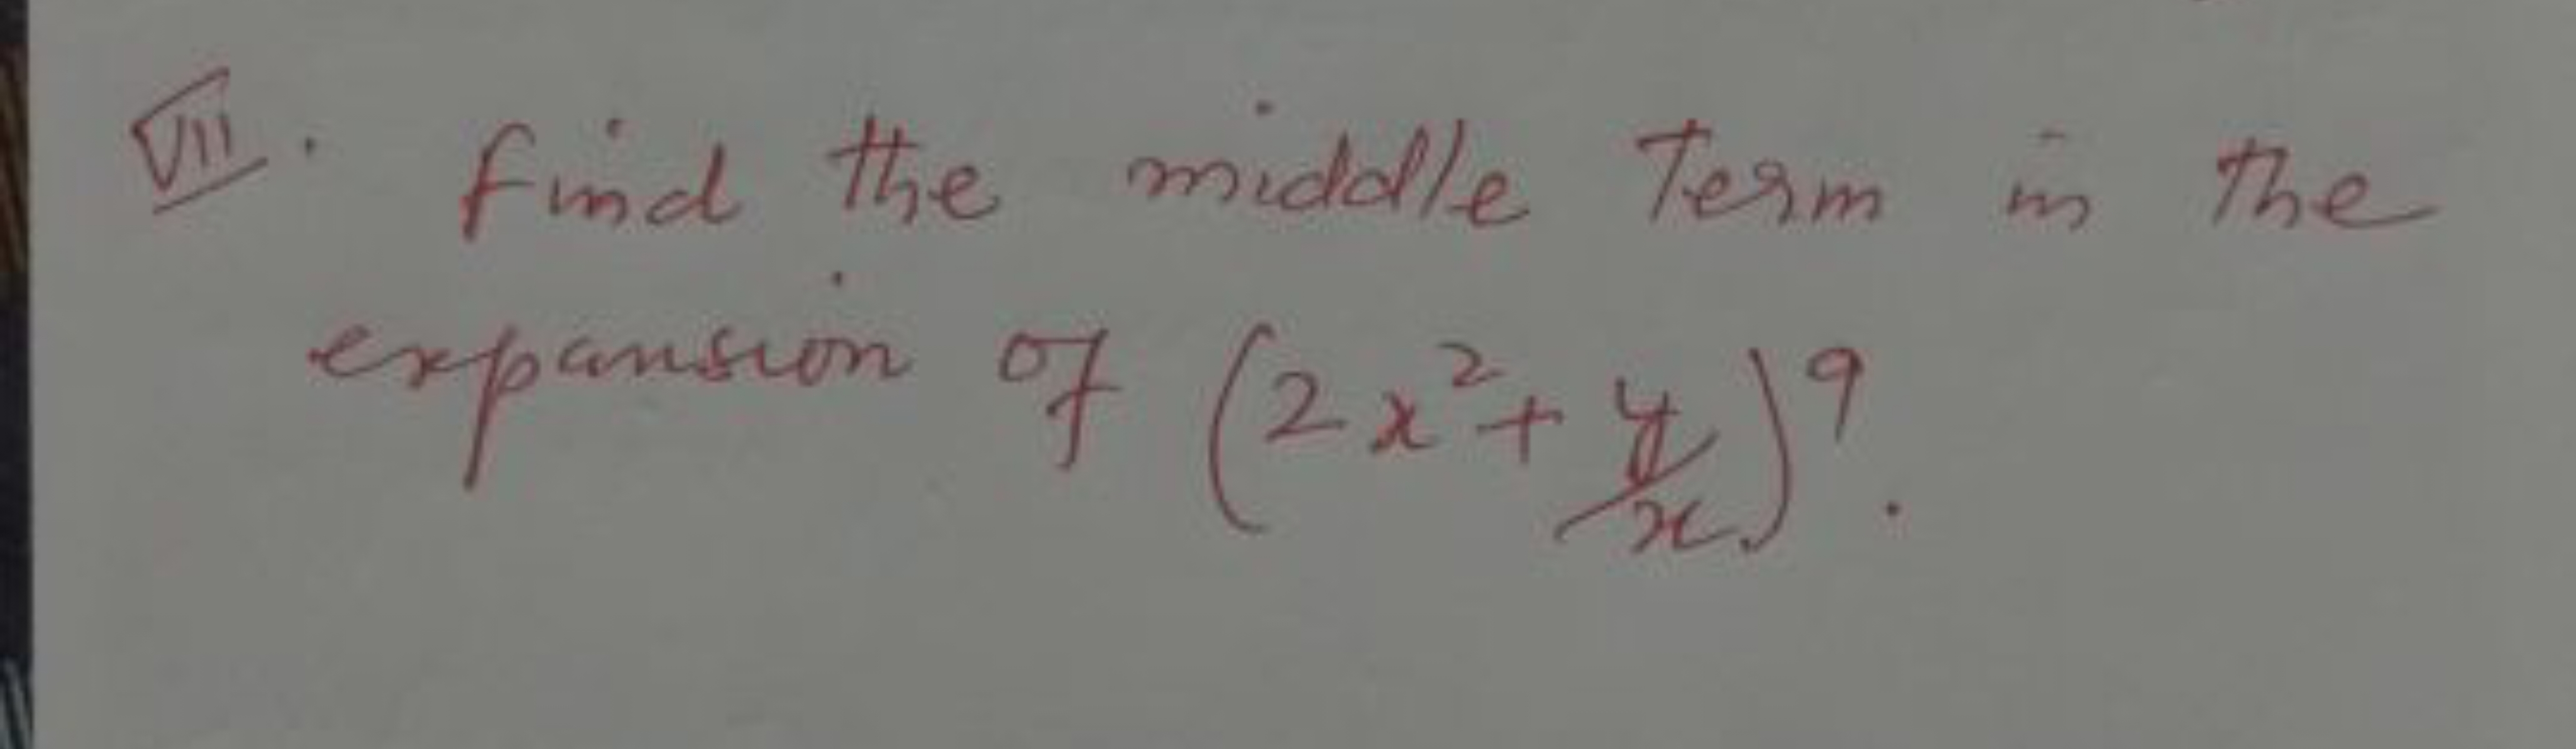 VII. find the middle Term in the
expansion of (2x²+ y/x)⁹.